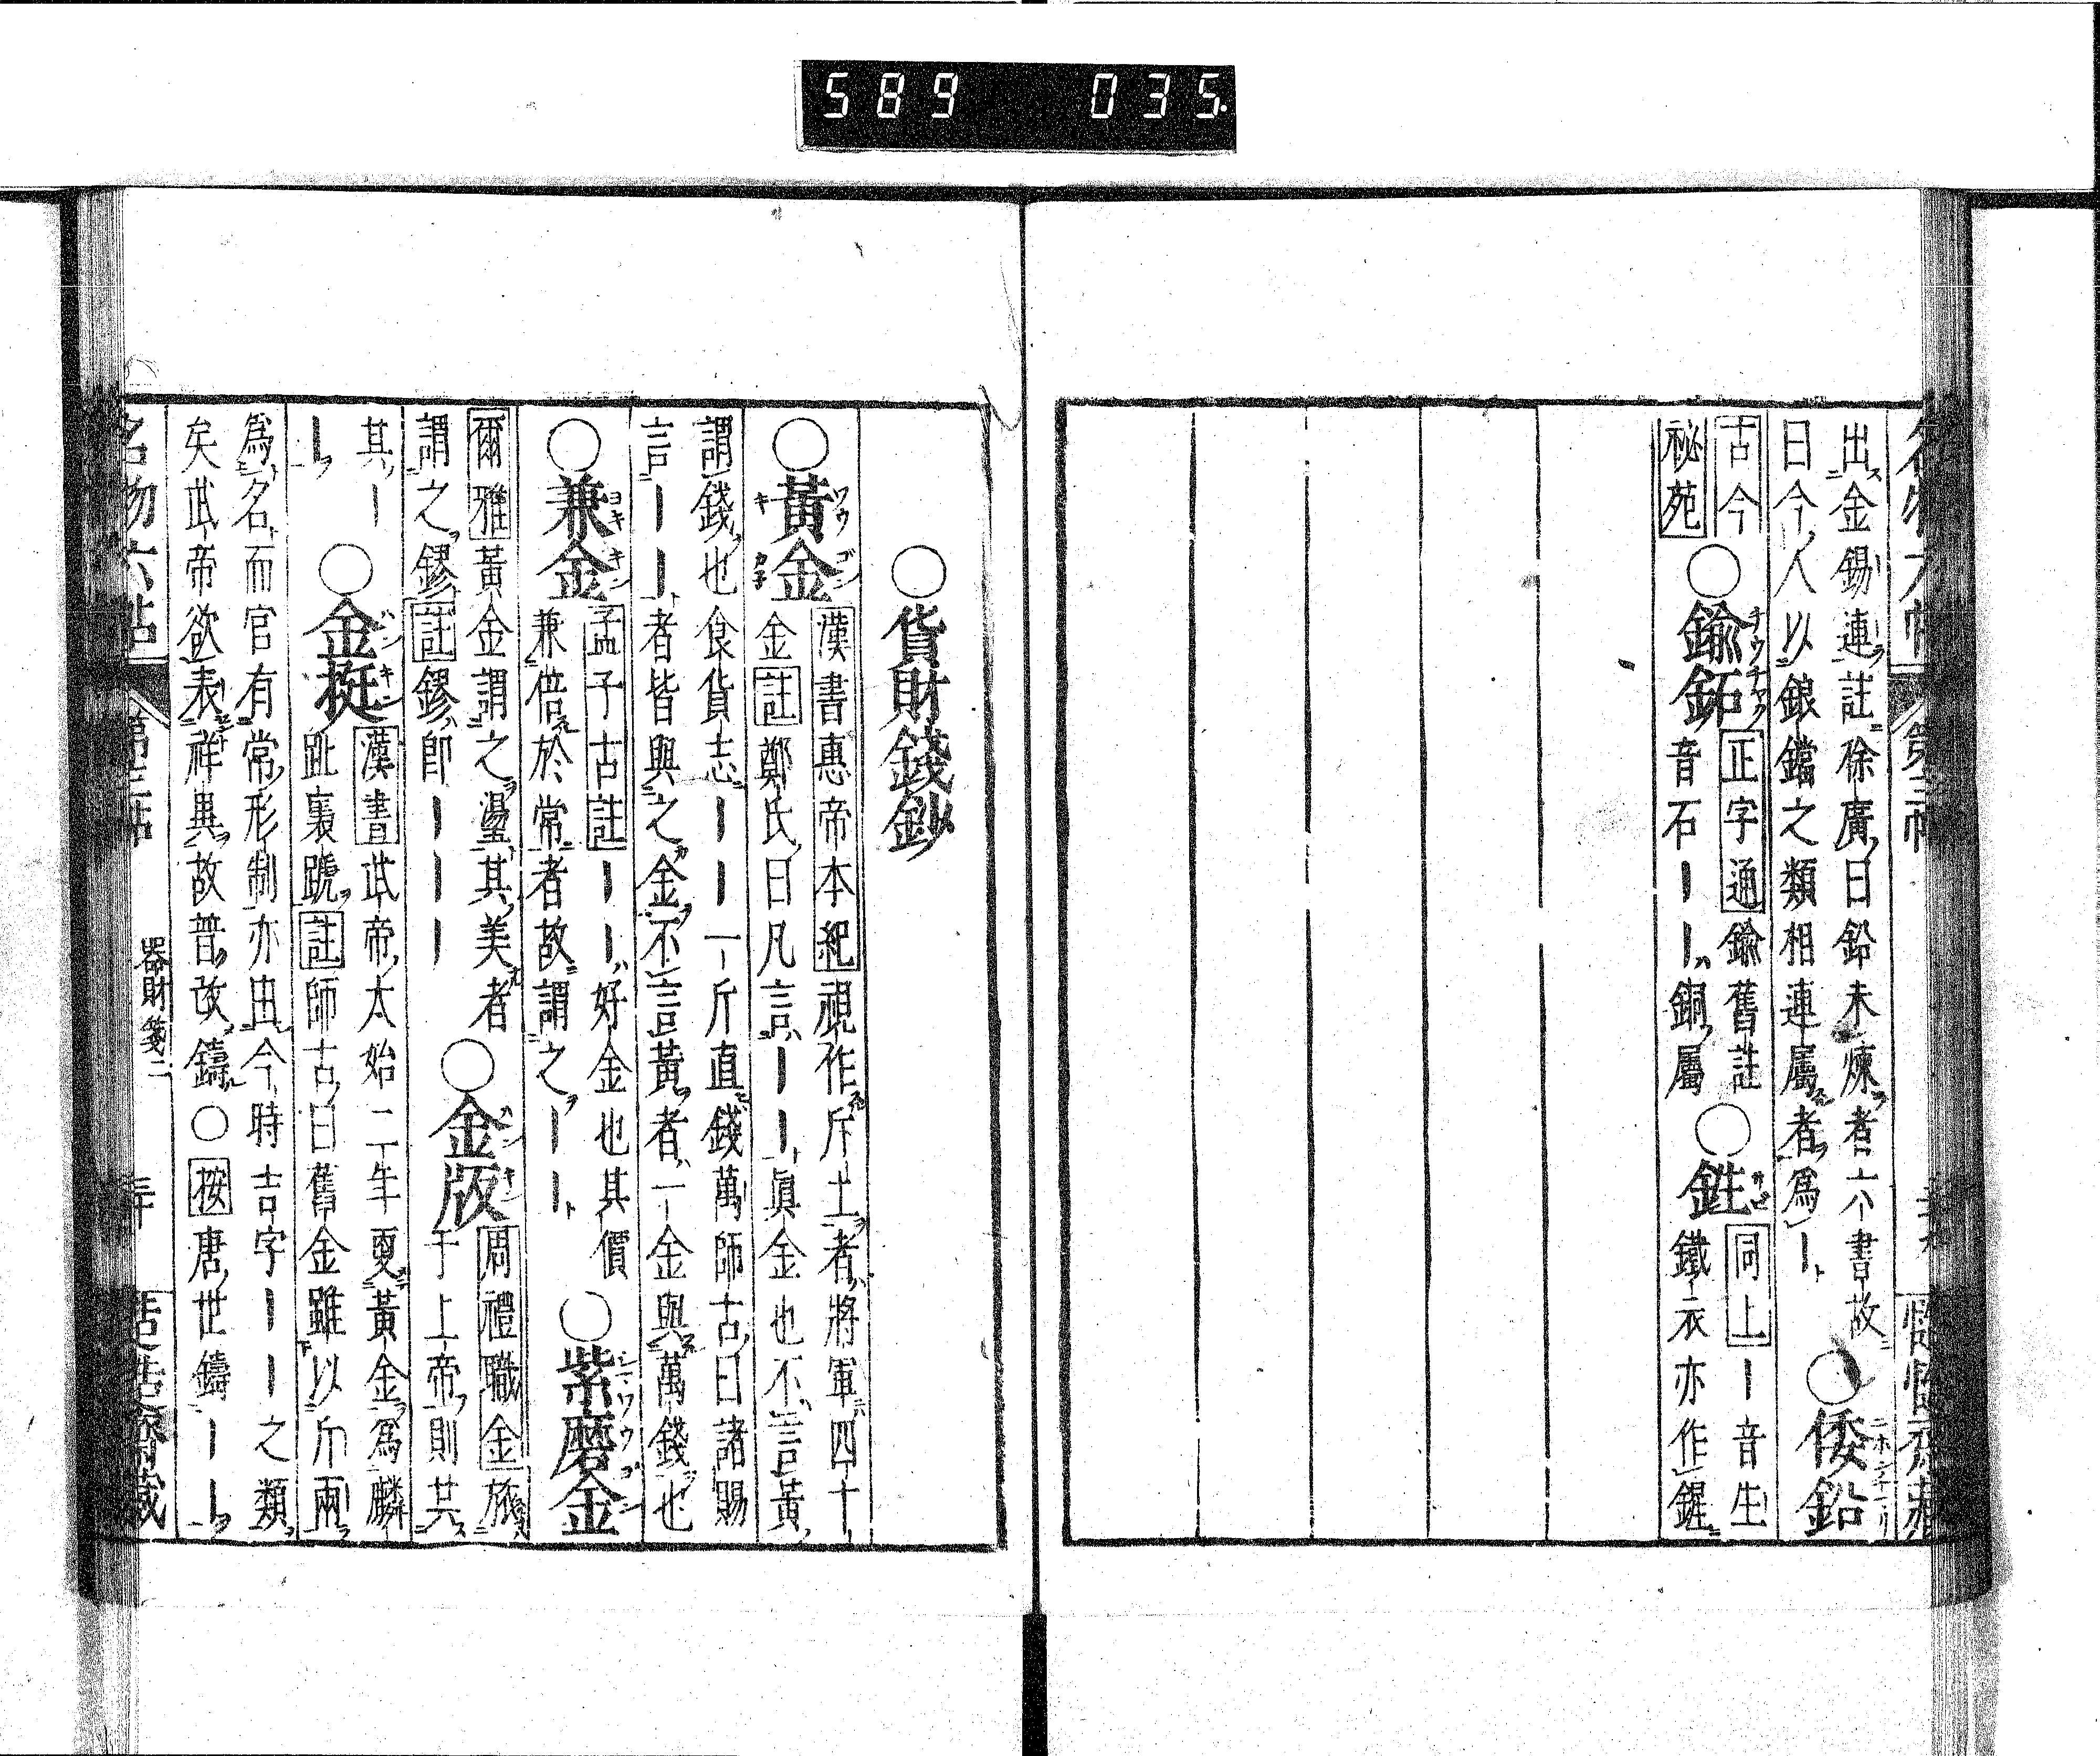 589 035.
出金錫連註徐廣曰鉛未煉者六書故
曰今人以銀鐺之類相連屬者爲｜
○倭鉛
古今
祕苑
○鍮鉐
正字通鍮舊註
音石｜｜銅屬
○鉎
同上｜音生
鐵衣亦作鍟
○貨財錢鈔
○黃金
漢書惠帝本紀視作斥土者將軍四十
金註鄭氏曰凡言｜｜眞金也不言黃
謂錢也食貨志｜｜一斤直錢萬師古曰諸賜
言｜｜者皆與之金不言黃者一金與萬錢也
○兼金
孟子古註｜｜好金也其價
兼倍於常者故謂之｜｜
○紫磨金
爾雅黃金謂之璗其美者
謂之鏐註鏐即｜｜｜
○金版
周禮職金旅
于上帝則共
其｜
｜
○金梃
漢書武帝太始二年更黃金爲麟
趾裏蹏註師古曰舊金雖以斤兩
爲名而官有常形制亦由今時吉字｜｜之類
矣武帝欲表祥異故普改鑄○按唐世鑄｜｜
器財箋二